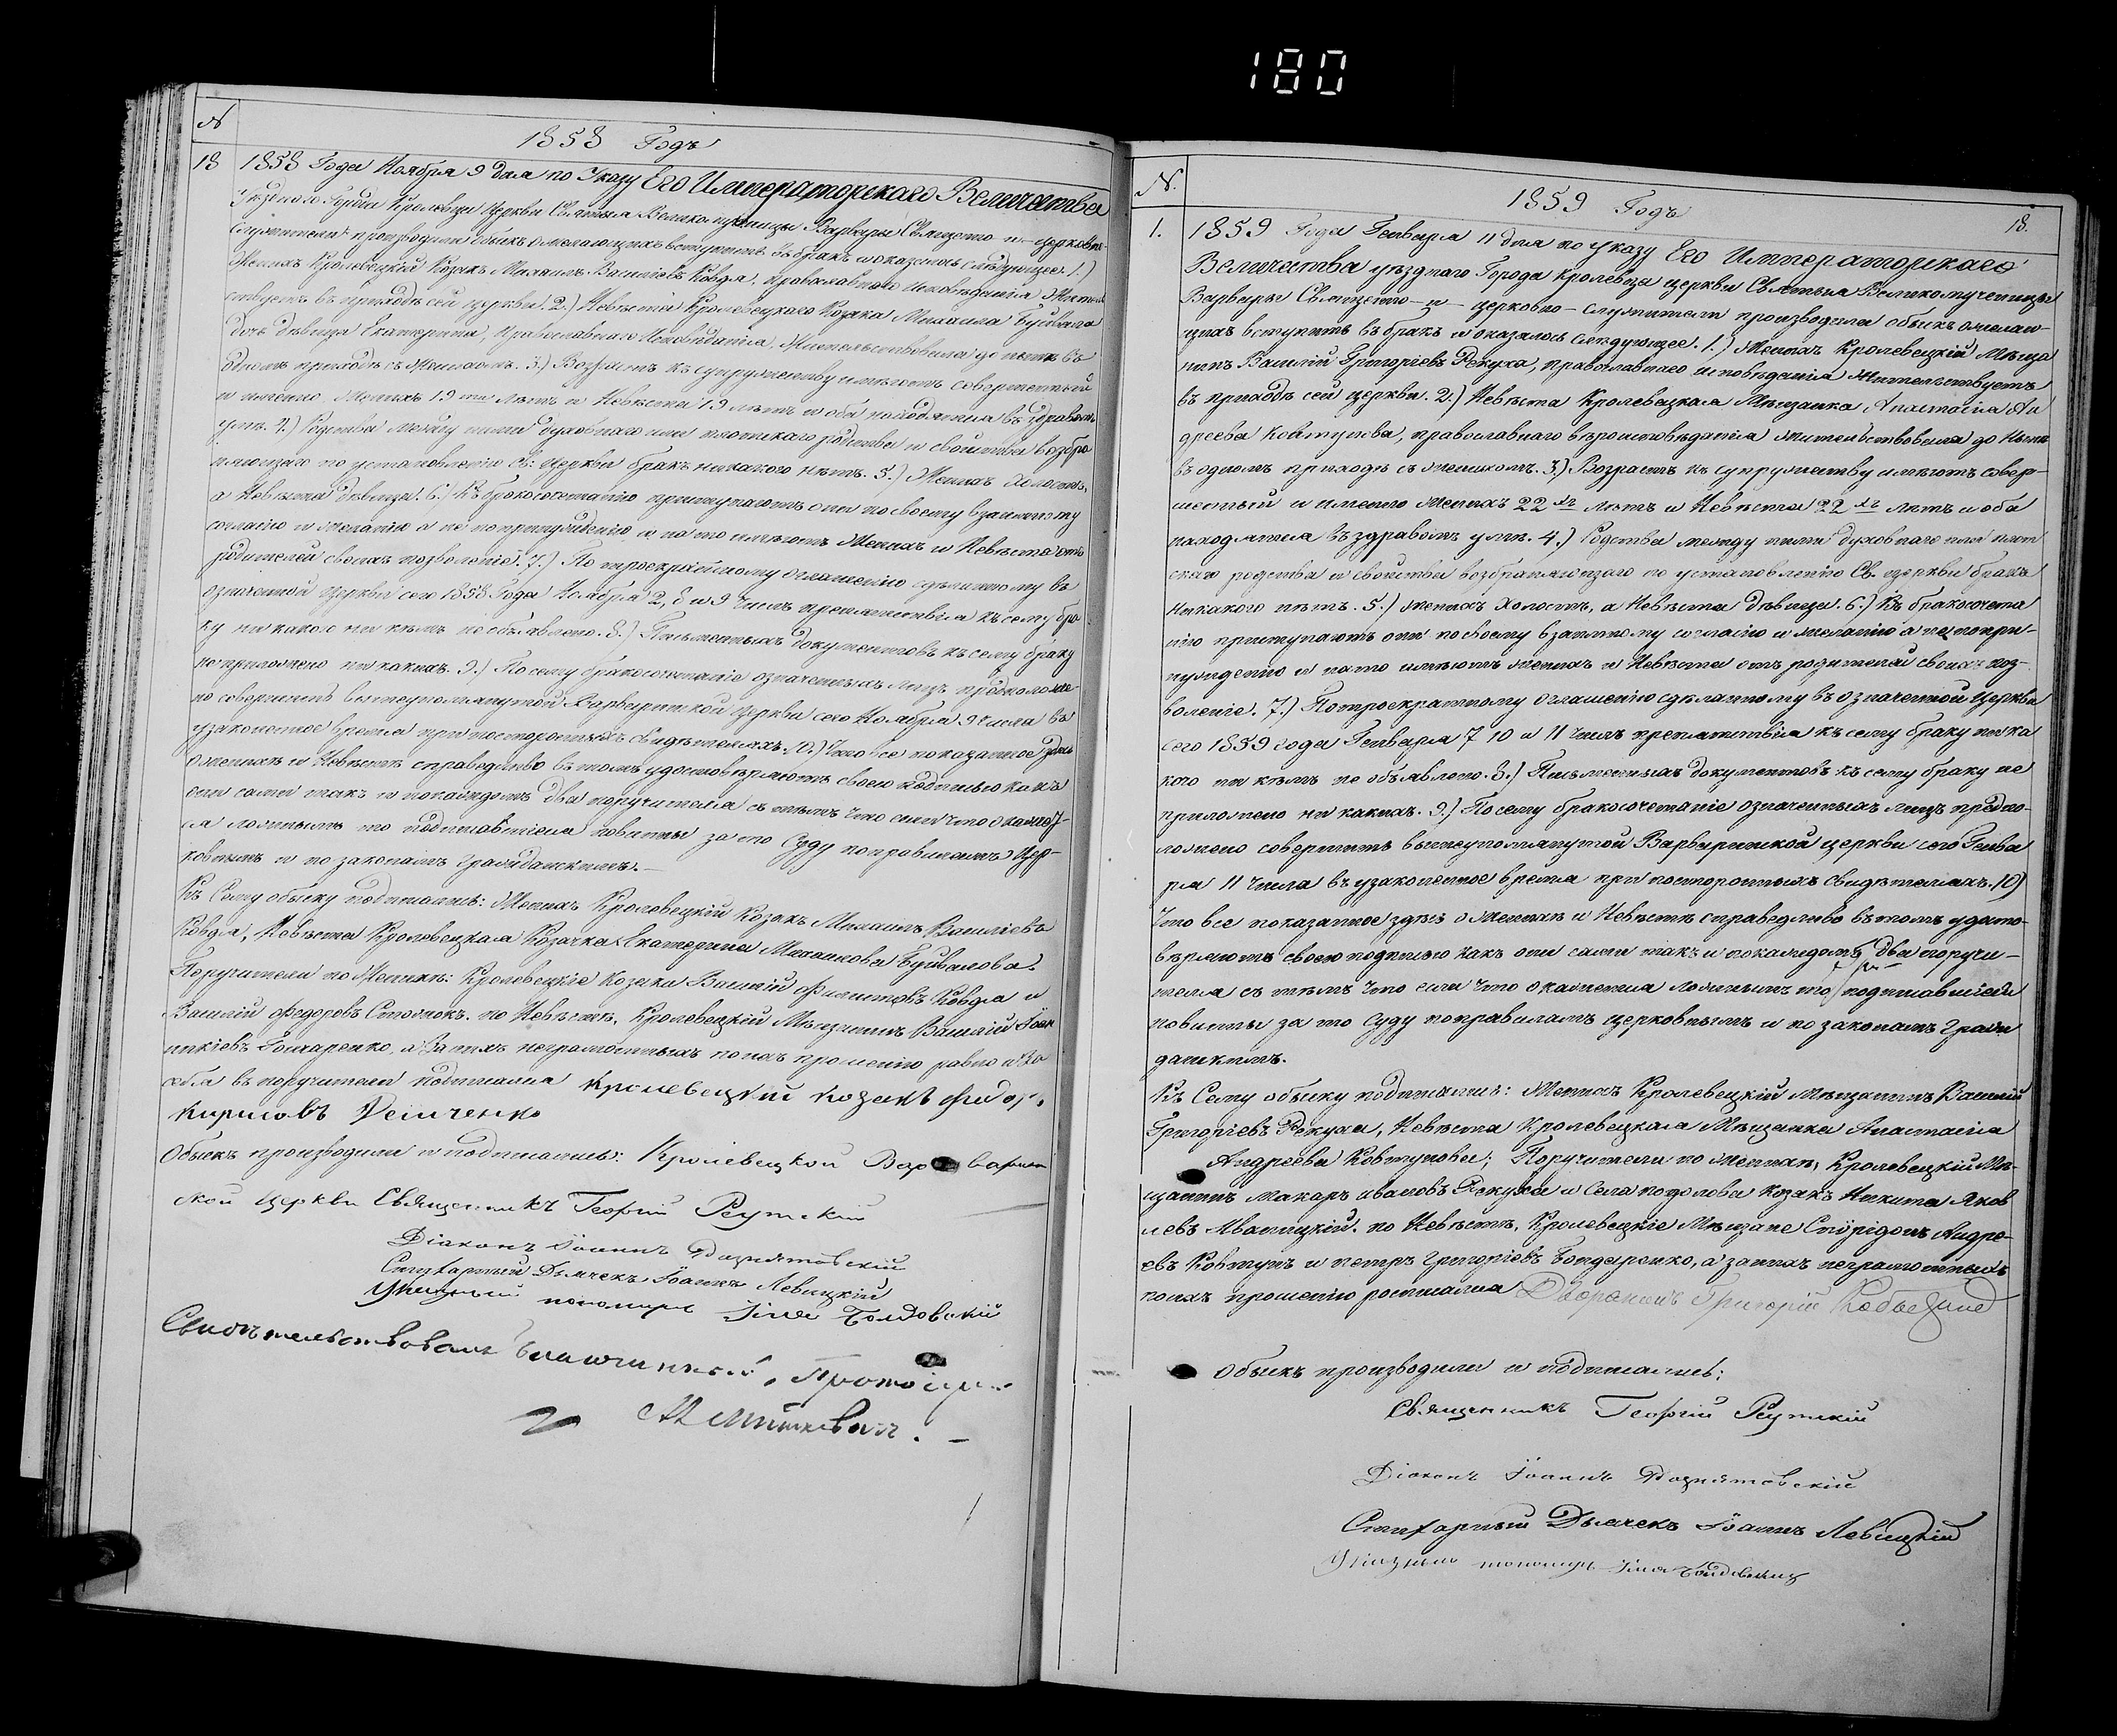 180
N
1858 Годъ
18 1858 Года Ноября 9 дня по Указу Его Императорскаго Величества
Уѣзднаго Города Кролевца Церкви Святыя Великомученицы Варвары Священно и церковно-
служители производили обыскъ о желающихъ вступить въ бракъ и оказалось слѣдующее. 1.)
Женихъ Кролевецкій Козакъ Михаилъ Васильевъ Ковдя, православнаго исповѣданія жительствуетъ въ приходѣ сей церкви. 2.) Невѣста Кролевецкаго Козака Михаила Буйвала
дочь дѣвица Екатерина, православнаго исповѣданія, жительствовала до нынѣ въ
одномъ приходѣ съ женихомъ. 3.) Возрастъ къ супружеству имѣютъ совершенный
и именно женихъ 19 лѣтъ и Невѣста 19 лѣтъ и оба находятся въ здравомъ
умѣ. 4.) Родства между ними духовнаго или плотскаго родства и свойства возбра
няющаго по установленію Св: Церкви бракъ никакого нѣтъ. 5.) Женихъ холостъ,
а Невѣста дѣвица. 6.) Къ бракосочетанію приступаютъ они по своему взаимному
согласію и желанію а не по принужденію и на то имѣютъ Женихъ и Невѣста отъ
родителей своихъ позволеніе. 7.) По троекратному оглашенію сдѣланному въ
означенной Церкви сего 1858 Года Ноября 2, 8 и 9 Числъ препятствія къ сему бра
ку ни какого ни кѣмъ не объявлено. 8.) Письменныхъ документовъ къ сему браку
не приложено ни какихъ. 9.) По сему бракосочетаніе означенныхъ лицъ предположе
но совершить въ вышеупомянутой Варваринской Церкви сего Ноября 9 числа въ
узаконенное время при постороннихъ свидѣтеляхъ. 10.) Что все показанное здѣсь
о женихѣ и Невѣстѣ справедливо въ томъ удостовѣряютъ своею подписью какъ
они сами такъ и по каждомъ два поручителя съ тѣмъ что если что окажет
ся ложнымъ то подписавшіеся повинны за то Суду по правиламъ Цер-
ковнымъ и по законамъ Гражданскимъ.
Къ Сему обыску подписались: Женихъ Кролевецкій Козакъ Михаилъ Васильевъ
Ковдя, Невѣста Кролевецкая Козачка Екатерина Михаилова Буйвалова.
Поручители по Женихѣ: Кролевецкіе Козаки Василій Филиповъ Ковдя и
Василій Федоровъ по Невѣстѣ, Кролевецкій Мѣщанинъ Василій Іоан
никіевъ Гончаренко, а за нихъ неграмотныхъ по ихъ прошенію равно и за
себя въ поручители подписался Кролевецкій козакъ Фидоръ
Кириловъ
Обыскъ производили и подписались: Кролевецкой Варварин
ской Церкви Священникъ Георгій Реутскій
Діаконъ Іоаннъ
Стихарный Дьячекъ Іоаннъ Левицкій
Указный пономарь Илія
Свидѣтельствовалъ благочинный, Протоіерей
N.
1859 Годъ
18.
1. 1859 Года Генваря 11 дня по указу Его Императорскаго
Величества уѣзднаго Города Кролевца церкви Святыя Великомученицы
Варвары Священно-и-церковно-служители производили обыскъ о желаю-
щихъ вступить въ бракъ и оказалось слѣдующее. 1.) Женихъ Кролевецкій Мѣща
нинъ Василій Григоріевъ Рекуха, православнаго исповѣданія жительствуетъ
въ приходѣ сей церкви. 2.) Невѣста Кролевецкая Мѣщанка Анастасія Ан
дреева Ковтунова, православнаго вѣроисповѣданія жительствовала до нынѣ
въ одномъ приходѣ съ женихомъ. 3.) Возрастъ къ супружеству имѣютъ совер-
шенный и именно женихъ 22 лѣтъ и Невѣста 22 лѣтъ и оба
находятся въ здравомъ умѣ. 4.) Родства между ними духовнаго или плот
скаго родства и свойства возбраняющаго по установленію Св. церкви бракъ
никакого нѣтъ. 5.) женихъ Холостъ, а Невѣста дѣвица. 6.) Къ бракосочета
нію приступаютъ они по своему взаимному согласію и желанію а не по при-
нужденію и на то имѣютъ женихъ и Невѣста отъ родителей своихъ поз-
воленіе. 7.) По троекратному оглашенію сдѣланному въ означенной Церкви
сего 1859 года Генваря 7 10 и 11 Числъ препятствія къ сему браку ни ка
кого ни кѣмъ не объявлено. 8.) Письменныхъ документовъ къ сему браку не
приложено ни какихъ. 9.) По сему бракосочетаніе означенныхъ лицъ предпо-
ложено совершить въ вышеупомянутой Варваринской церкви сего Генва
ря 11 числа въ узаконенное время при постороннихъ свидѣтеляхъ. 10)
Что все показанное здѣсь о женихѣ и Невѣстѣ справедливо въ томъ удосто-
вѣряютъ своею подписью какъ они сами такъ и по каждомъ два поручи-
теля съ тѣмъ что если что окажется ложнымъ то подписавшіеся
повинны за то Суду по правиламъ церковнымъ и по законамъ Граж
данскимъ.
Къ Сему обыску подписались: Женихъ Кролевецкій Мѣщанинъ Василій
Григоріевъ Рекуха, Невѣста Кролевецкая Мѣщанка Анастасія
Андреева Ковтунова; Поручители по женихѣ, Кролевецкій Мѣ-
щанинъ Макаръ Ивановъ Рекуха и Села Подолова Козакъ Никита Яков
левъ Иваницкій. по Невѣстѣ, Кролевецкіе Мѣщане Спиридонъ Андре-
евъ Ковтунъ и Петръ Григоріевъ Бондаренко, а за нихъ неграмотныхъ
по ихъ прошенію росписался Дворянинъ Григорій
Обыскъ производили и подписались:
Священникъ Георгій Реутскій
Діаконъ Іоаннъ
Стихарный Дьячекъ Іоаннъ Левицкій
Указный пономарь Илія